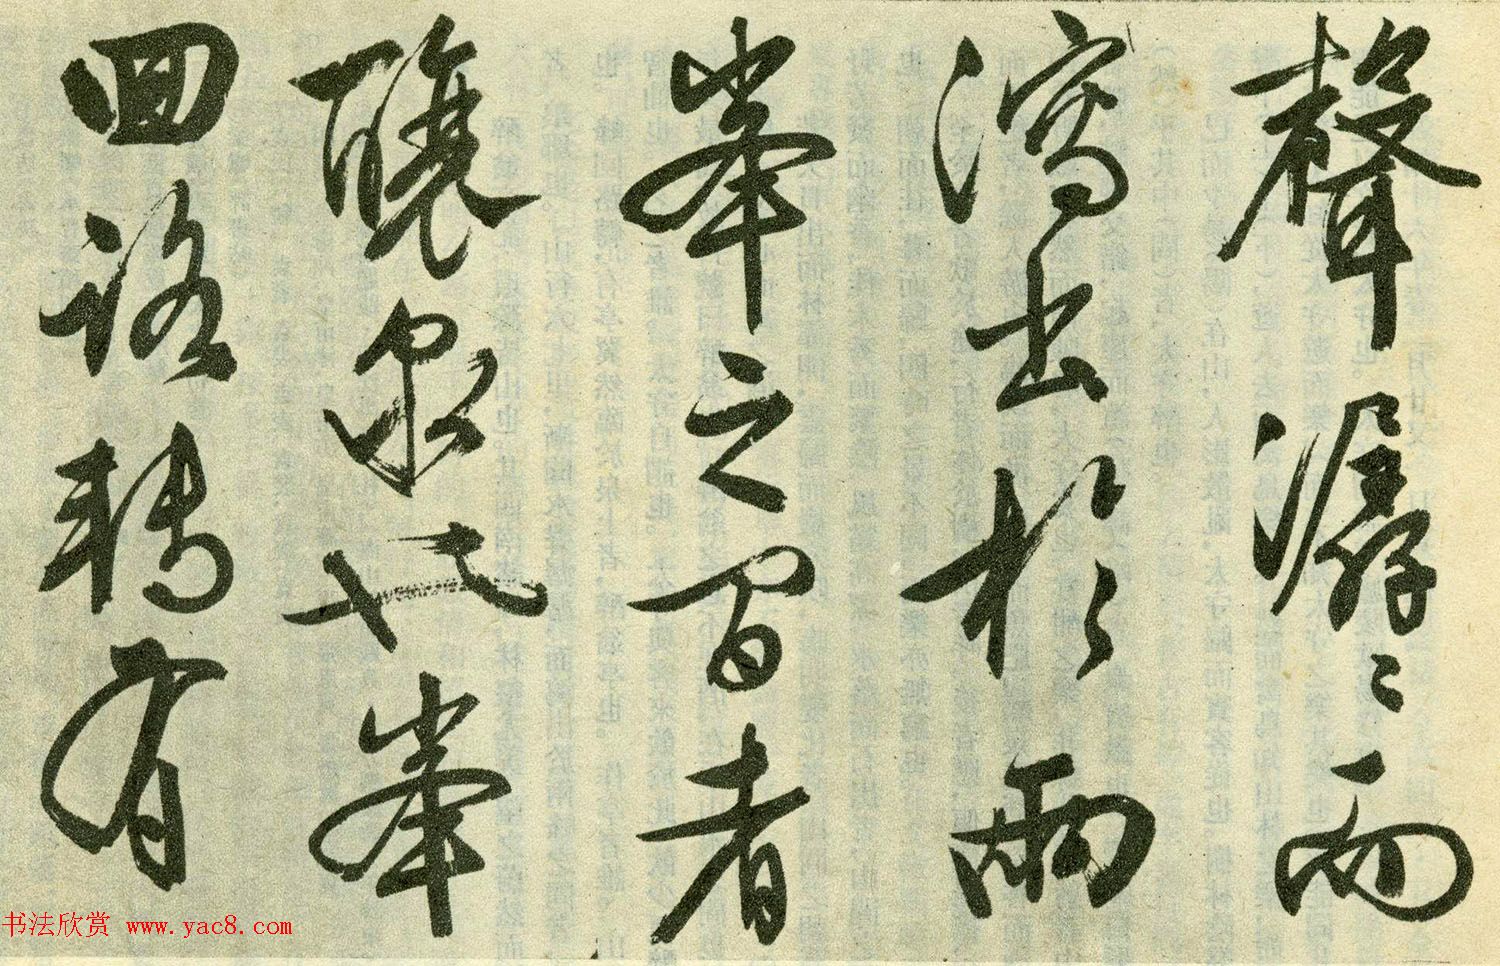 聲潺〻而
瀉出於兩
峯之間者
釀泉也峯
回路轉有
书法欣赏 www.yac8.com